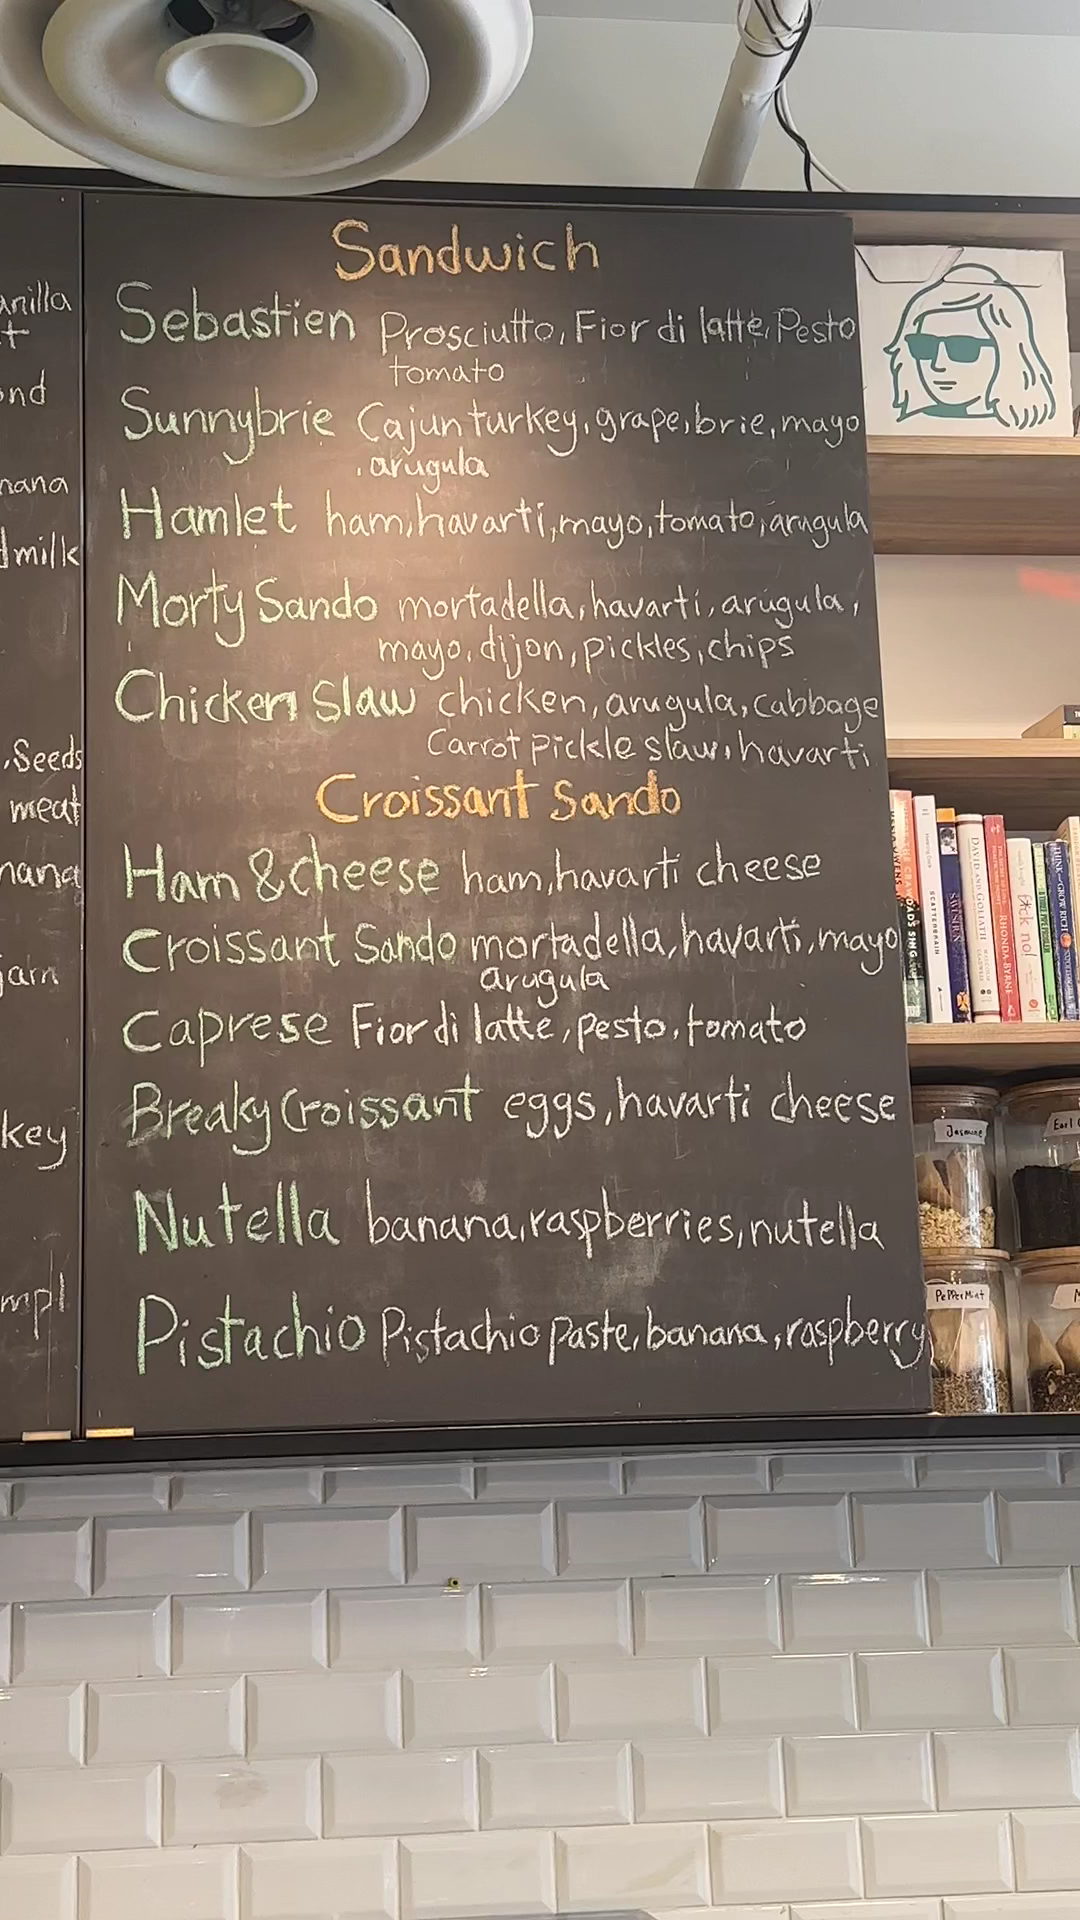 Sandwich
Sebastien Prosciutto, Fior di latte, Pesto
tomato
Sunnybrie Cajun turkey, grape, brie, mayo
, arugula
Hamlet ham, havarti, mayo, tomato, arugula
Morty Sando mortadella, havarti, arugula,
mayo, dijon, pickles, chips
Chicken Slaw chicken, arugula, cabbage
Carrot pickle slaw, havarti
Croissant Sando
Ham & cheese ham, havarti cheese
Croissant Sando mortadella, havarti, mayo
arugula
Caprese Fior di latte, pesto, tomato
Breaky Croissant eggs, havarti cheese
Nutella banana, raspberries, nutella
Pistachio Pistachio paste, banana, raspberry
anilla
t
ond
nana
dmilk
, Seeds
meat
nana
jam
key
mpl
SCATTERBRAIN
DAVID AND GOLIATH
RHONDA BYRNE
THINK AND GROW RICH
Jasmine
Earl
PePPerMint
M